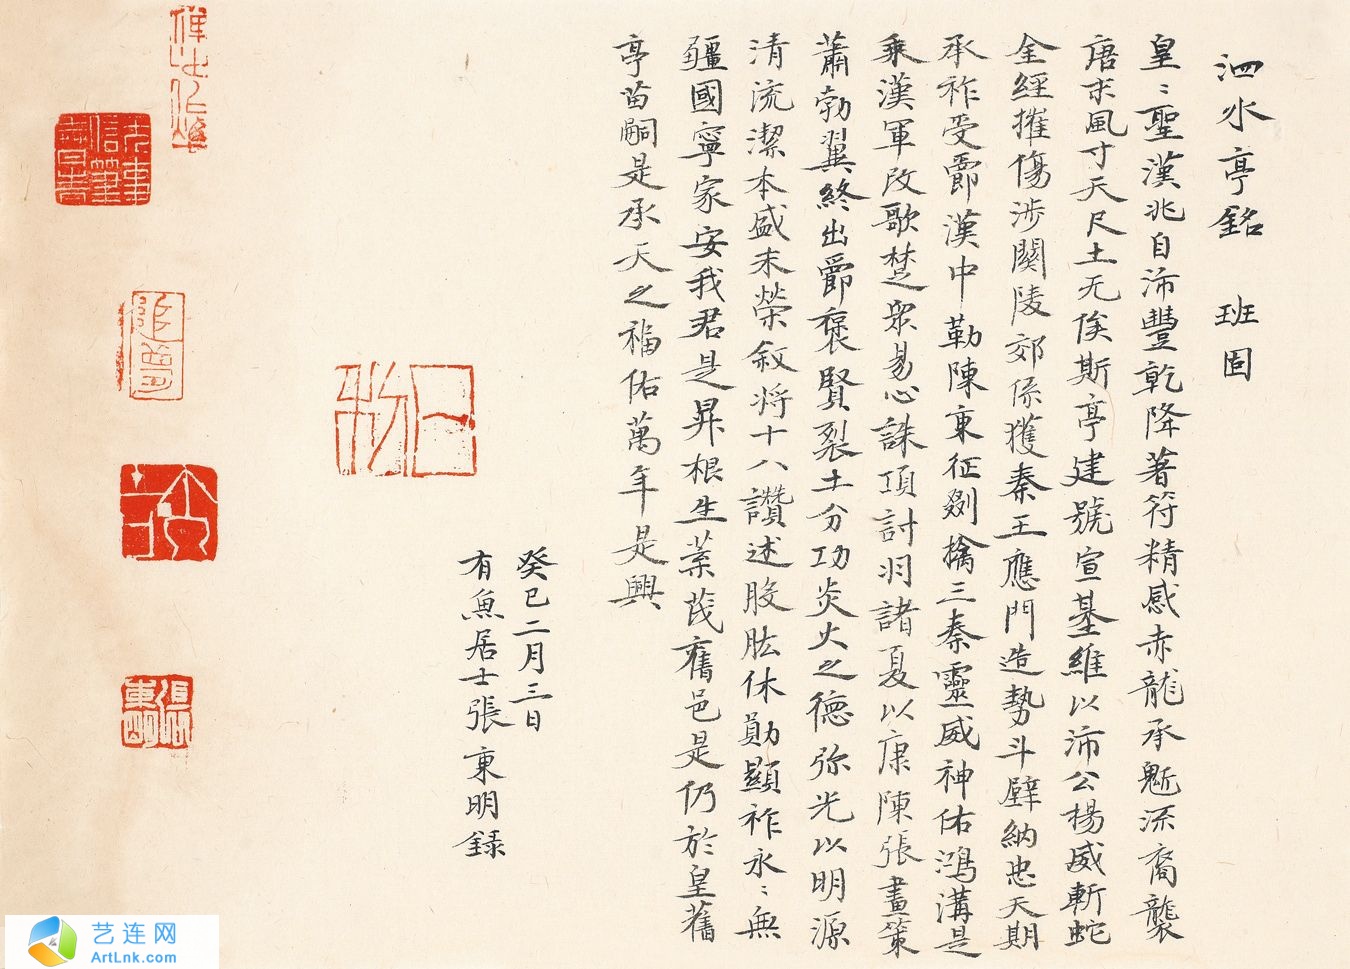 泗水亭銘 班固
皇〻聖漢兆自沛豐乾降著符精感赤龍承魁流裔襲
唐末風寸天尺土无俟斯亭建號宣基維以沛公楊威斬蛇
金經摧傷涉關陵郊係獲秦王應門造勢斗壁納忠天期
承祚受爵漢中勒陳東征剟擒三秦靈威神佑鴻溝是
乘漢軍改歌楚眾易心誅項討羽諸夏以康陳張畫策
蕭勃翼終出爵褒賢裂土分功炎火之德弥光以明源
清流潔本盛末榮叙將十八讚述股肱休勛顯祚永〻無
疆國寧家安我君是昇根生葉茂舊邑是仍於皇舊
亭苗嗣是承天之福佑萬年是興
癸巳二月三日
有魚居士張東明録
艺连网
ArtLnk.com